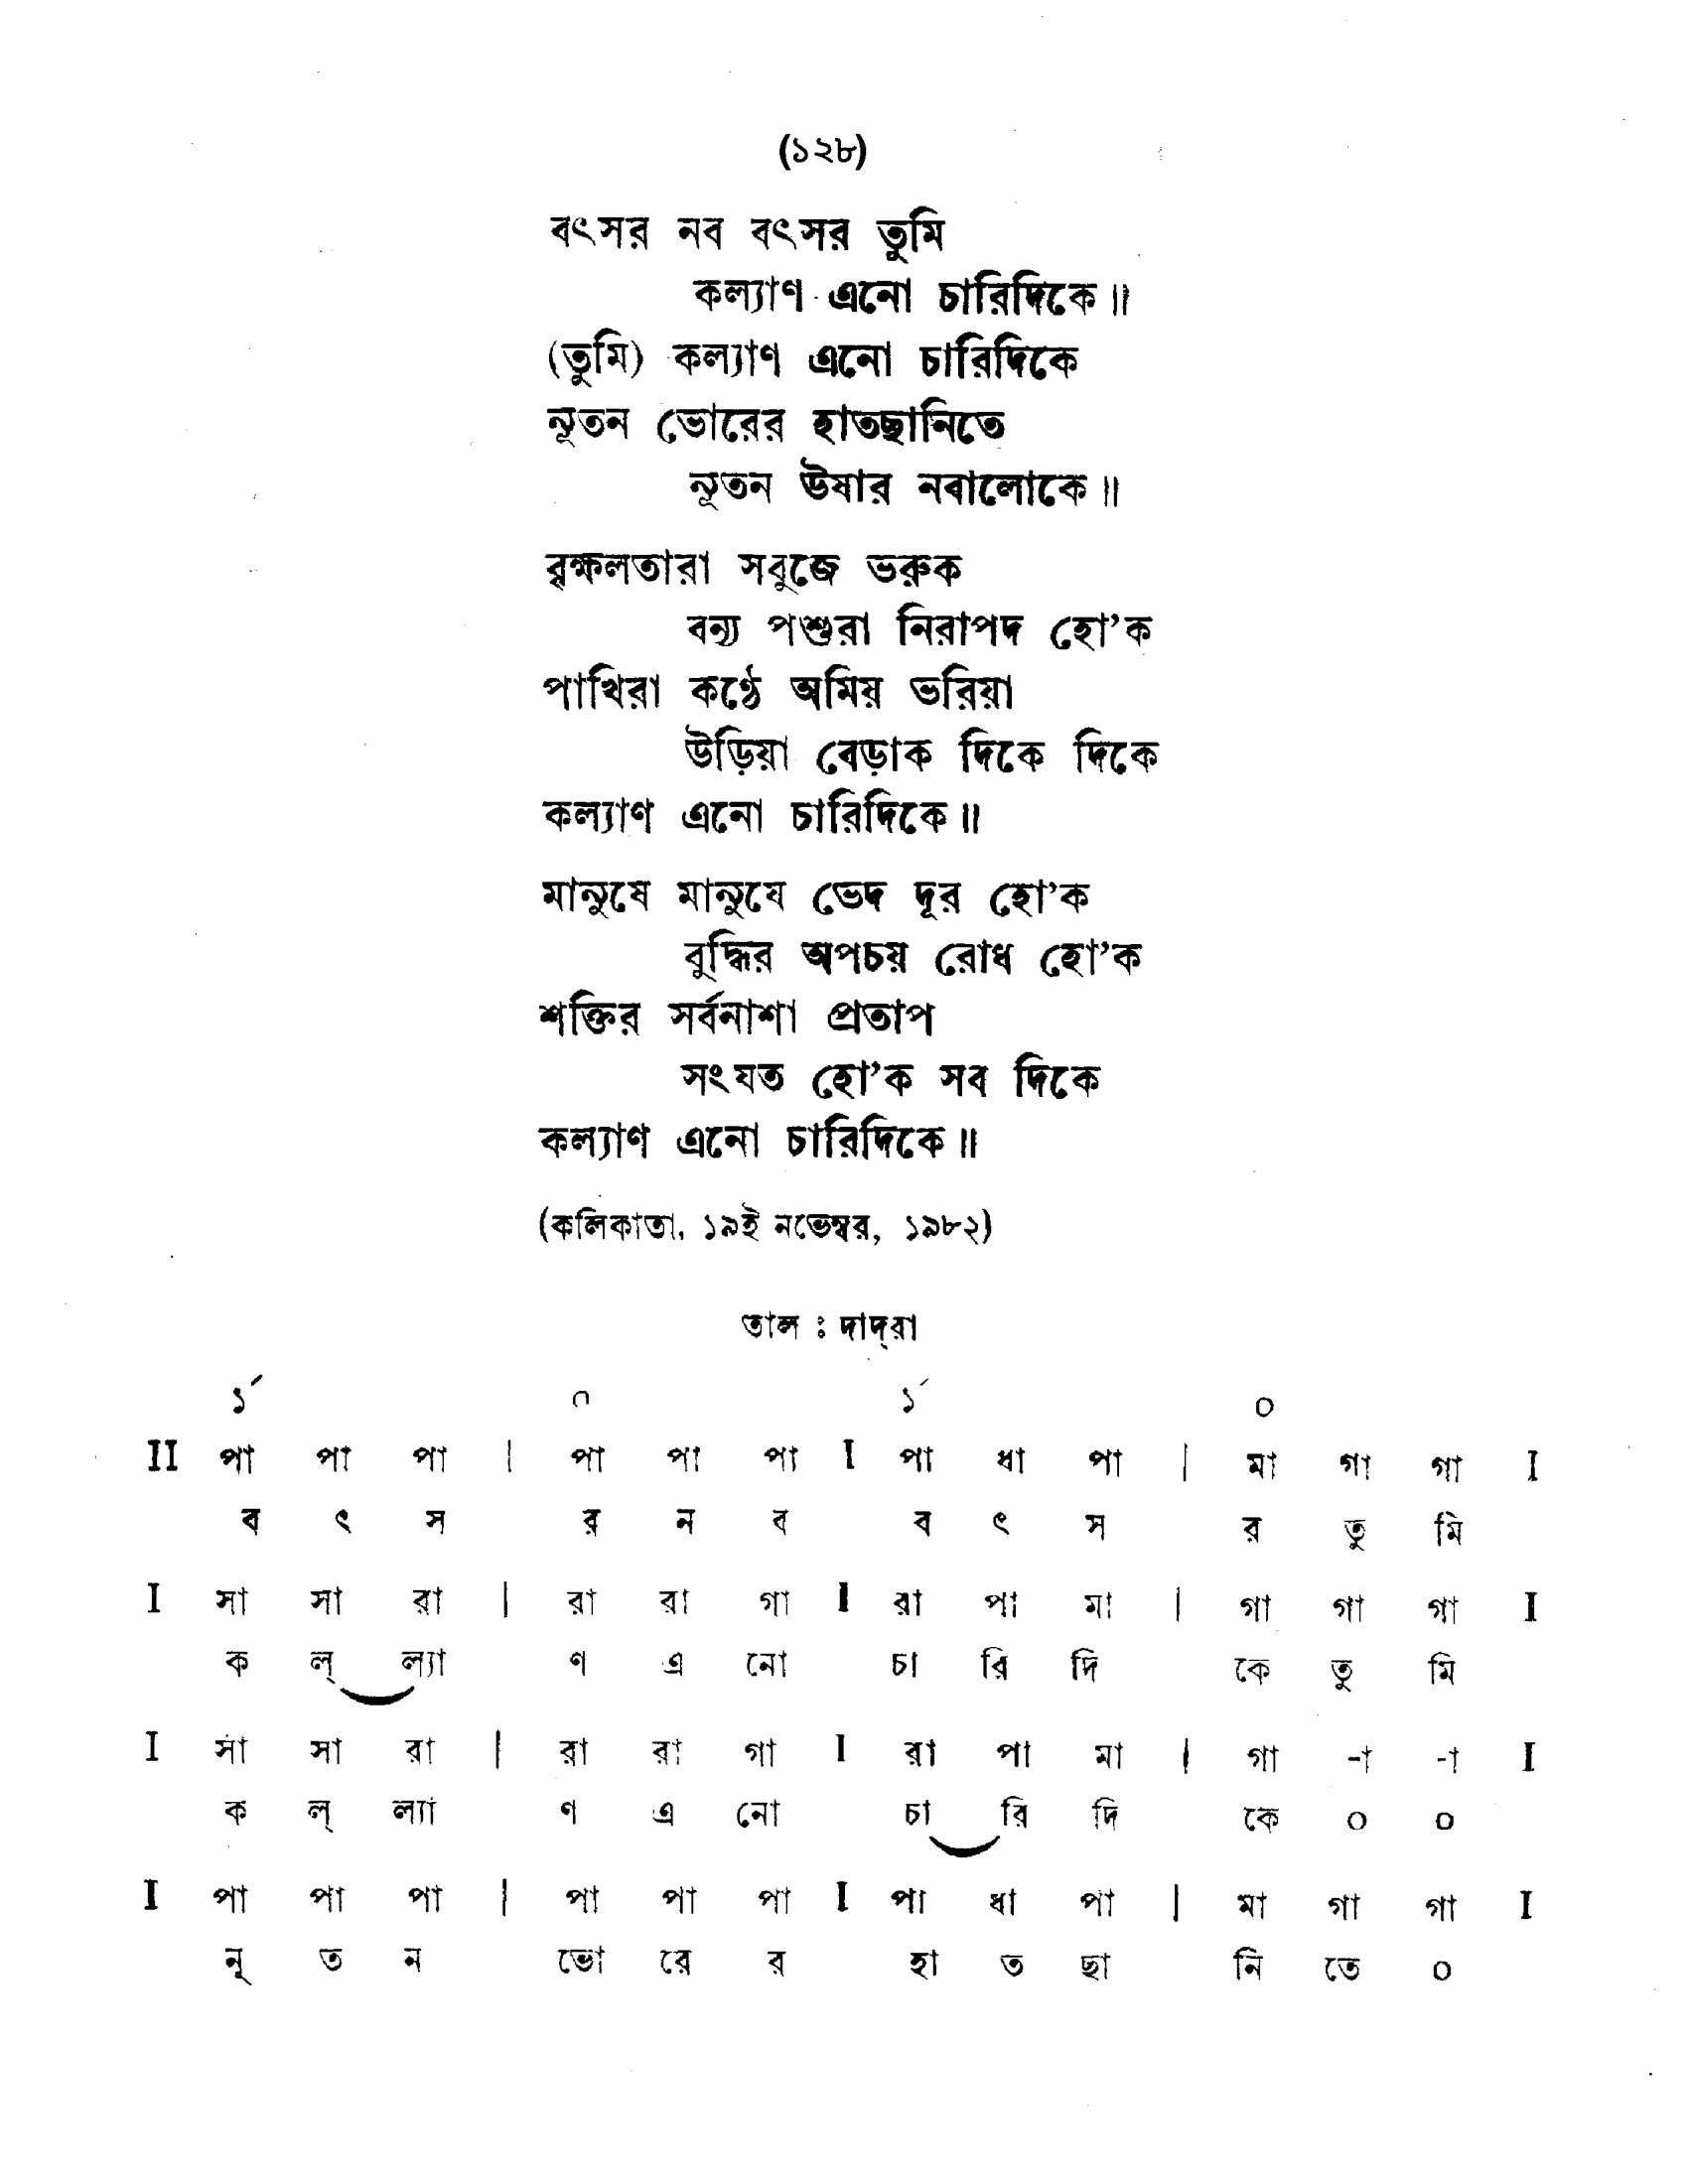 (১২৮)
বৎসর নব বৎসর তুমি
কল্যাণ এনো চারিদিকে॥
(তুমি) কল্যাণ এনো চারিদিকে
নূতন ভোরের হাতছানিতে
নূতন ঊষার নবালোকে॥
বৃক্ষলতারা সবুজে ভরুক
বন্য পশুরা নিরাপদ হো'ক
পাখিরা কণ্ঠে অমিয় ভরিয়া
উড়িয়া বেড়াক দিকে দিকে
কল্যাণ এনো চারিদিকে॥
মানুষে মানুষে ভেদ দূর হো'ক
বুদ্ধির অপচয় রোধ হো'ক
শক্তির সর্বনাশা প্রতাপ
সংযত হো'ক সব দিকে
কল্যাণ এনো চারিদিকে॥
(কলিকাতা, ১৯ই নভেম্বর, ১৯৮২)
তাল ঃ দাদ্‌রা
১´ ০ ১´ ০
II পা পা পা | পা পা পা I পা ধা পা | মা গা গা I
ব ৎ স র ন ব ব ৎ স র তু মি
I সা সা রা | রা রা গা I রা পা মা | গা গা গা I
ক ল্ ল্যা ণ এ নো চা রি দি কে তু মি
I সা সা রা | রা রা গা I রা পা মা | গা -া -া I
ক ল্ ল্যা ণ এ নো চা রি দি কে ০ ০
I পা পা পা | পা পা পা I পা ধা পা | মা গা গা I
নূ ত ন ভো রে র হা ত ছা নি তে ০